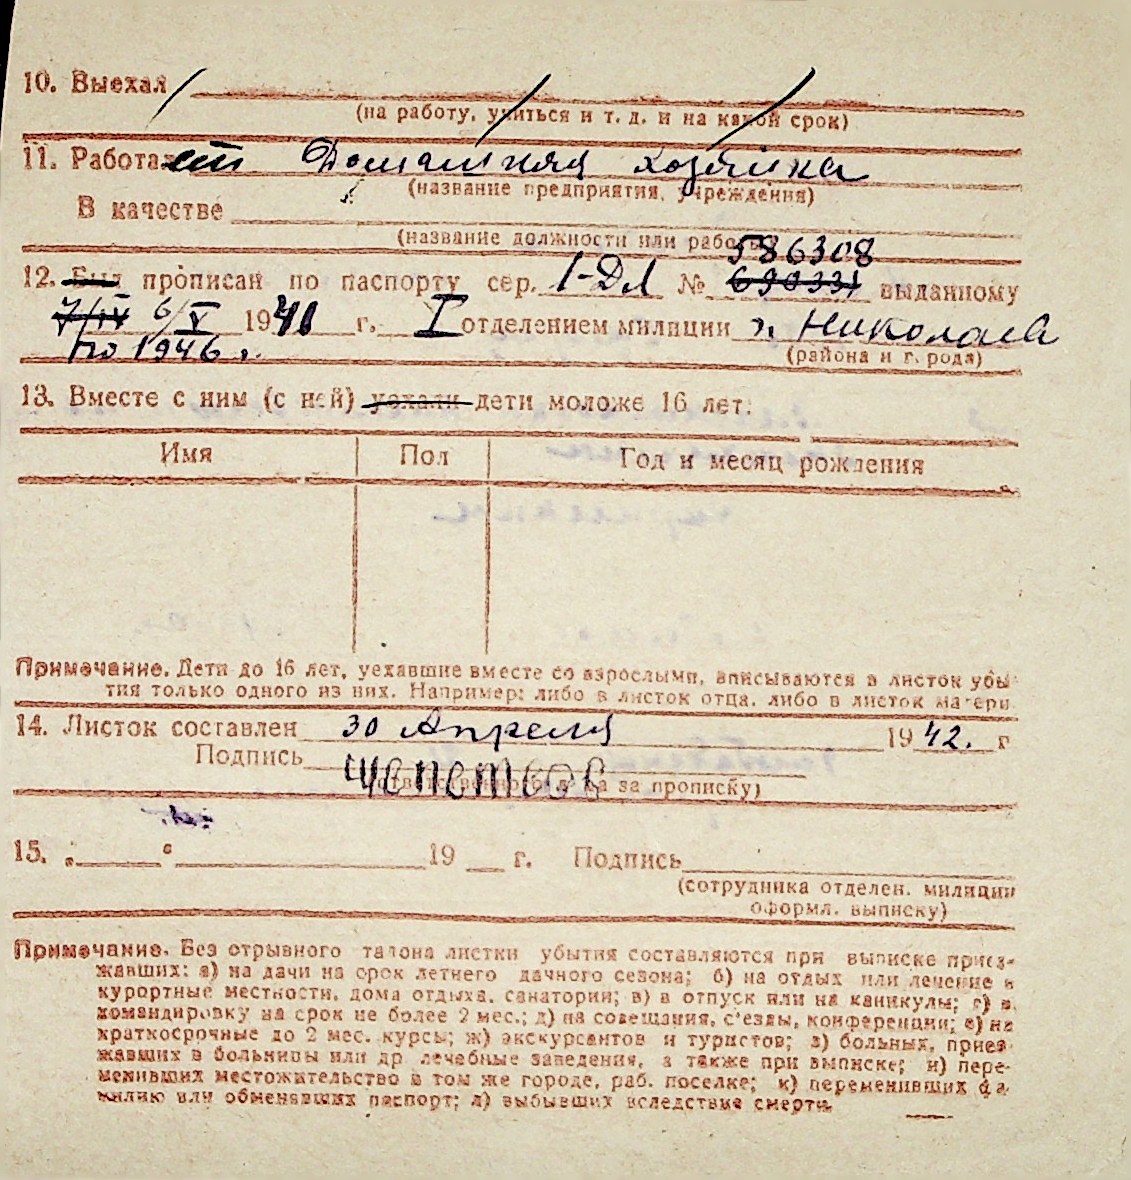 10. Выехал
(на работу, учиться и т. д. и на какой срок)
11. Работает Домашняя хозяйка
(название предприятия, учреждения)
В качестве
(название должности или работы)
586308
12. Был прописан по паспорту сер. 1-ДЛ № 690331 выданному
7/IV 6/V 1941 г. I отделением милиции г. Николаев
по 1946 г. (района и г. рода)
13. Вместе с ним (с ней) уехали дети моложе 16 лет:
Имя Пол Год и месяц рождения
Примечание. Дети до 16 лет, уехавшие вместе со взрослыми, вписываются в листок убы
тия только одного из них. Например: либо в листок отца, либо в листок матери
14. Листок составлен 30 Апреля 1942. г
Подпись
за прописку)
15. „ “ 19 г. Подпись
(сотрудника отделен. милиции
оформл. выписку)
Примечание. Без отрывного талона листки убытия составляются при выписке приез-
жавших: а) на дачи на срок летнего дачного сезона; б) на отдых или лечение в
курортные местности, дома отдыха, санатории; в) в отпуск или на каникулы; г) в
командировку на срок не более 2 мес.; д) на совещания, с'езды, конференции; е) на
краткосрочные до 2 мес. курсы; ж) экскурсантов и туристов; з) больных, приез-
жавших в больницы или др лечебные заведения, а также при выписке; и) пере-
менивших местожительство в том же городе, раб. поселке; к) переменивших фа-
милию или обменявших паспорт; л) выбывших вследствие смерти.